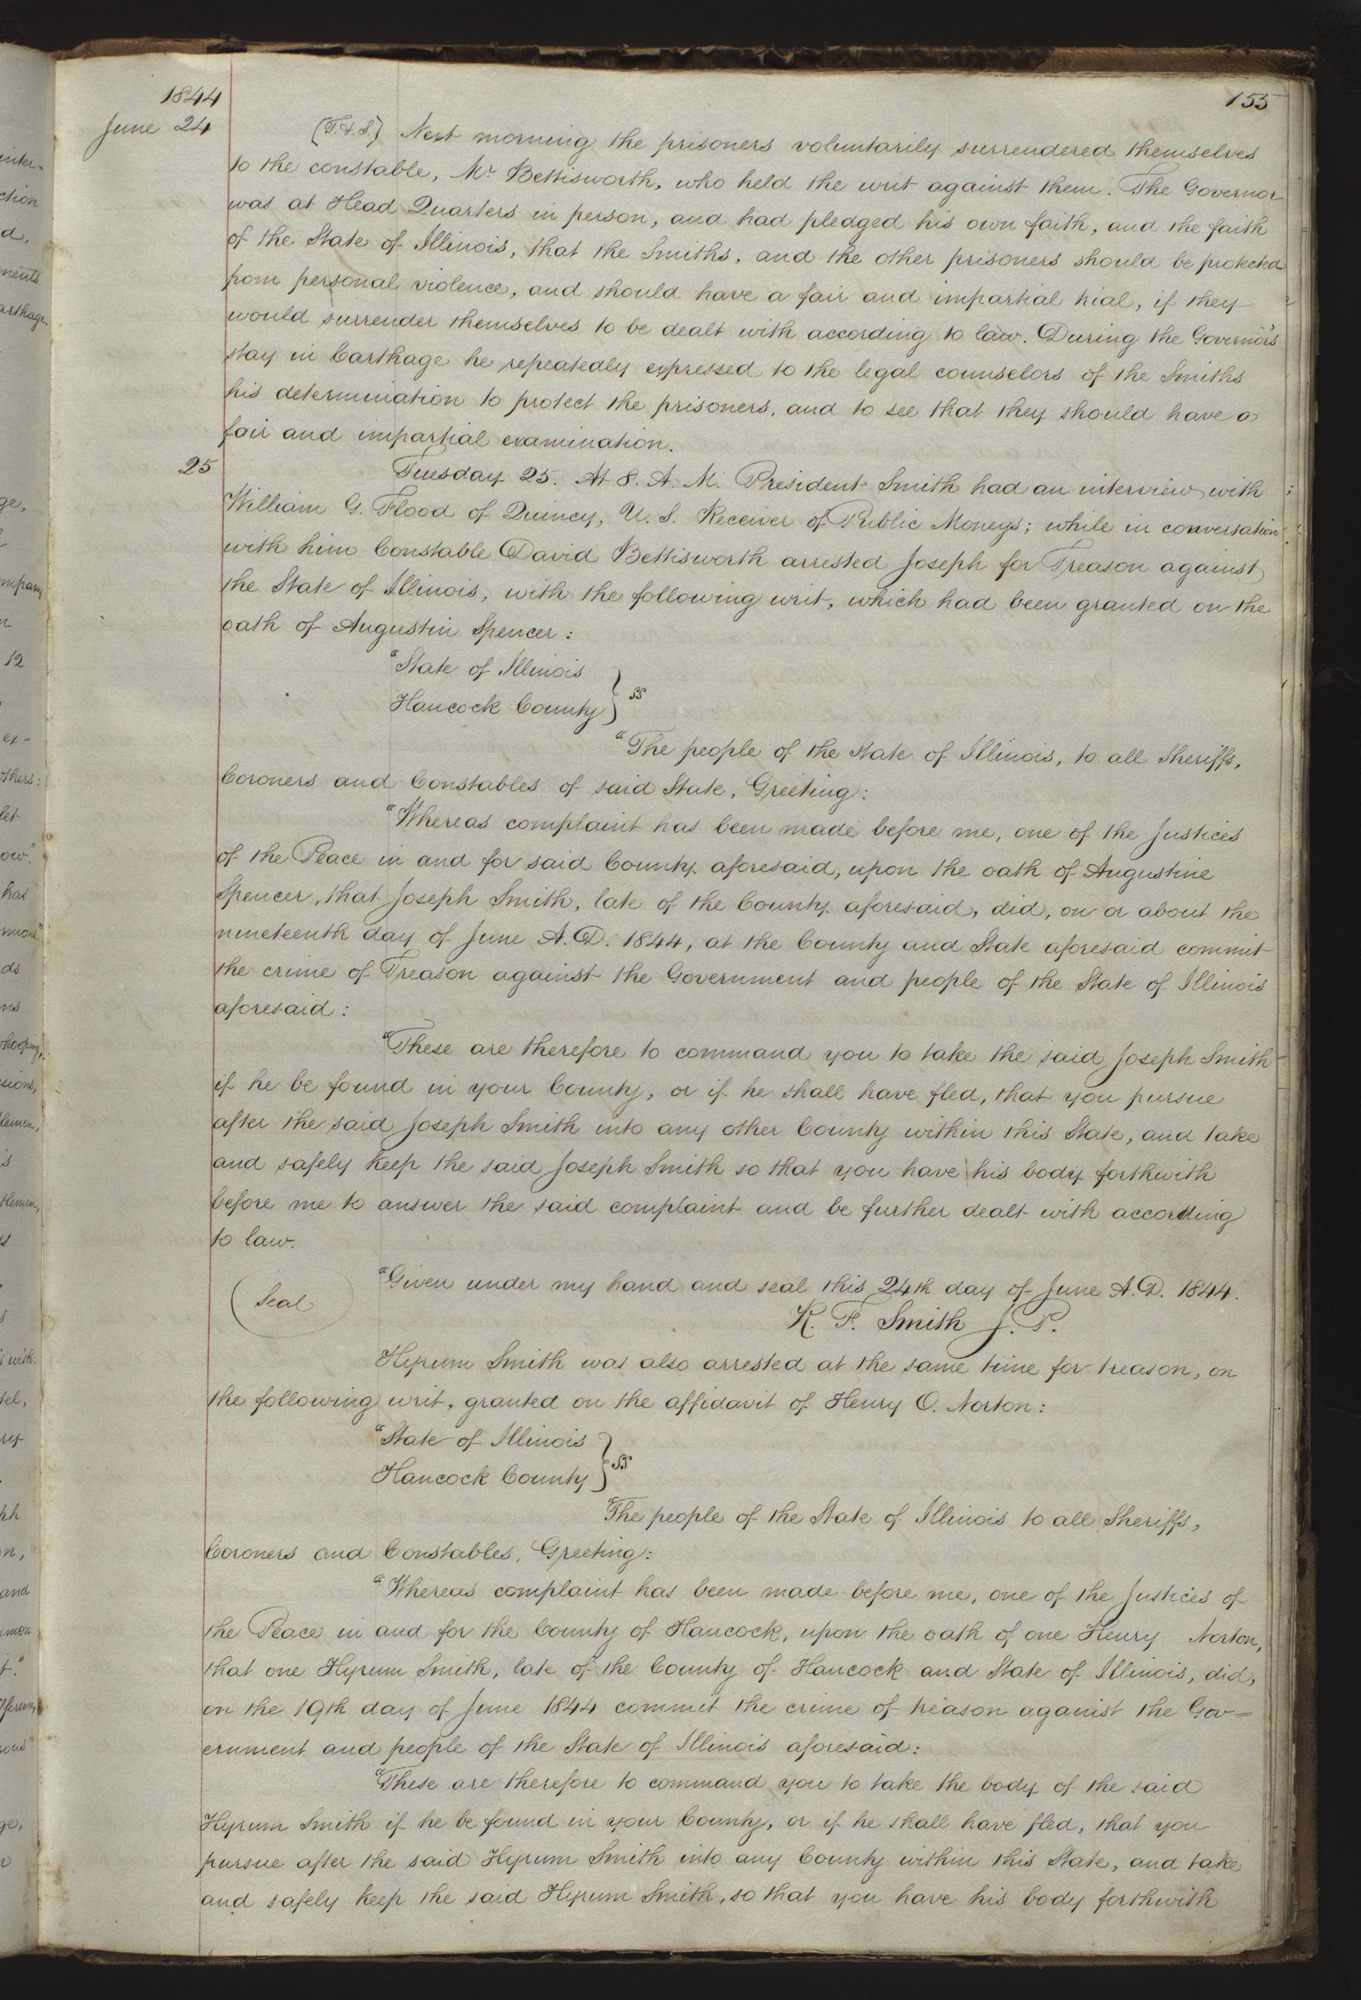 155
1844
June 24
(T. & S.) Next morning the prisoners voluntarily surrendered themselves
to the constable, Mr Bettisworth, who held the writ against them. The Governor
was at Head Quarters in person, and had pledged his own faith, and the faith
of the State of Illinois, that the Smiths, and the other prisoners should be protected
from personal violence, and should have a fair and impartial trial, if they
would surrender themselves to be dealt with according to law. During the Governor's
stay in Carthage he repeatedly expressed to the legal counselors of the Smiths
his determination to protect the prisoners, and to see that they should have a
fair and impartial examination.
25
Tuesday 25. At 8. A. M. President Smith had an interview with
William G. Flood of Quincy, U. S. Receiver of Public Moneys; while in conversation
with him Constable David Bettisworth arrested Joseph for Treason against
the State of Illinois, with the following writ, which had been granted on the
oath of Augustin Spencer:
"State of Illinois
Hancock County } ss
"The people of the State of Illinois, to all Sheriffs,
Coroners and Constables of said State, Greeting:
"Whereas complaint has been made before me, one of the Justices
of the Peace in and for said County aforesaid, upon the oath of Augustine
Spencer, that Joseph Smith, late of the County aforesaid, did, on or about the
nineteenth day of June A.D. 1844, at the County and State aforesaid commit
the crime of Treason against the Government and people of the State of Illinois
aforesaid:
"These are therefore to command you to take the said Joseph Smith
if he be found in your County, or if he shall have fled, that you pursue
after the said Joseph Smith into any other County within this State, and take
and safely keep the said Joseph Smith so that you have his body forthwith
before me to answer the said complaint and be further dealt with according
to law.
"Given under my hand and seal this 24th day of June A.D. 1844.
(Seal)
R. F. Smith J. P.
Hyrum Smith was also arrested at the same time for treason, on
the following writ, granted on the affidavit of Henry O. Norton:
"State of Illinois
Hancock County } ss
"The people of the State of Illinois to all Sheriffs,
Coroners and Constables, Greeting:
"Whereas complaint has been made before me, one of the Justices of
the Peace in and for the County of Hancock, upon the oath of one Henry Norton,
that one Hyrum Smith, late of the County of Hancock and State of Illinois, did,
on the 19th day of June 1844 commit the crime of treason against the Gov=
ernment and people of the State of Illinois aforesaid:
"These are therefore to command you to take the body of the said
Hyrum Smith if he be found in your County, or if he shall have fled, that you
pursue after the said Hyrum Smith into any County within this State, and take
and safely keep the said Hyrum Smith, so that you have his body forthwith